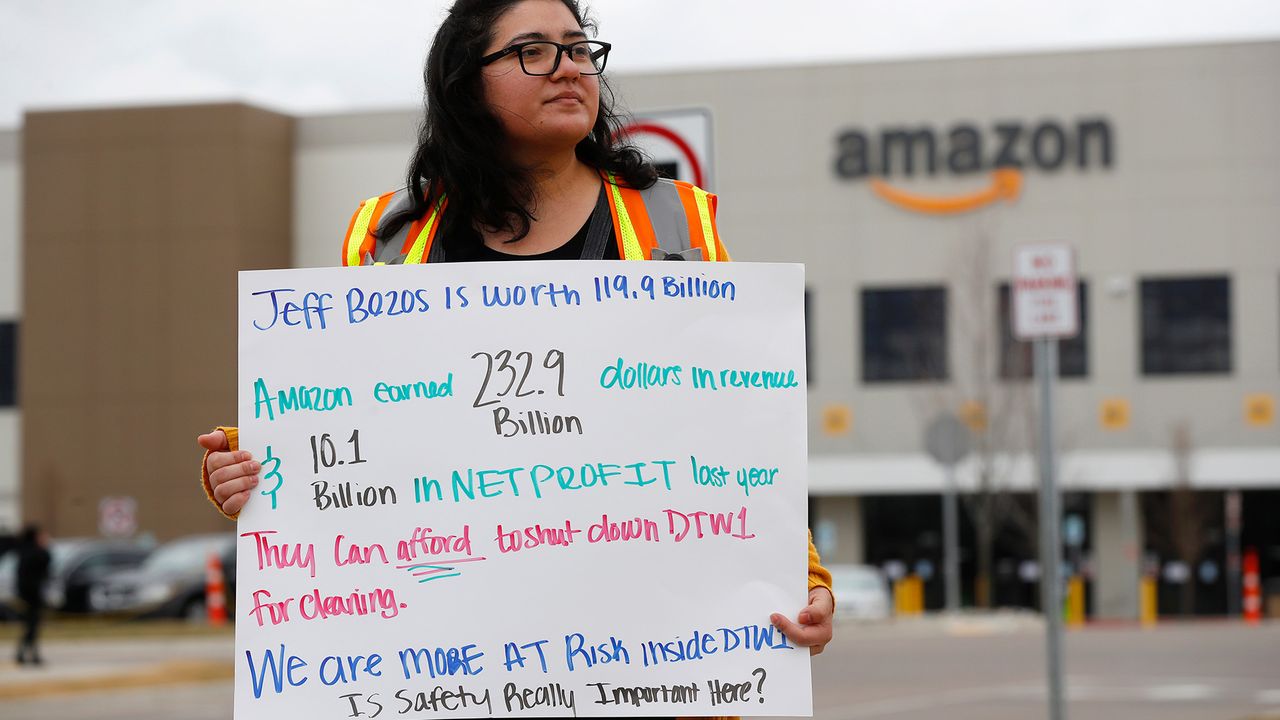 amazon
Jeff Bezos Is worth 119.9 Billion
Amazon earned 232.9 Billion dollars in revenue
$ 10.1 Billion in NET PROFIT last year
They Can afford to shut down DTW1
for cleaning.
We are MORE AT Risk inside DTW1
Is Safety Really Important Here?
NO
PARKING